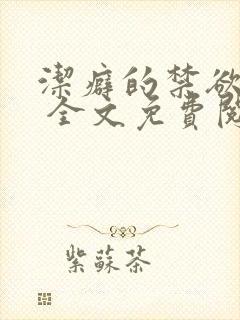 潔癖的禁欲
全文免費閱
紫蘇茶